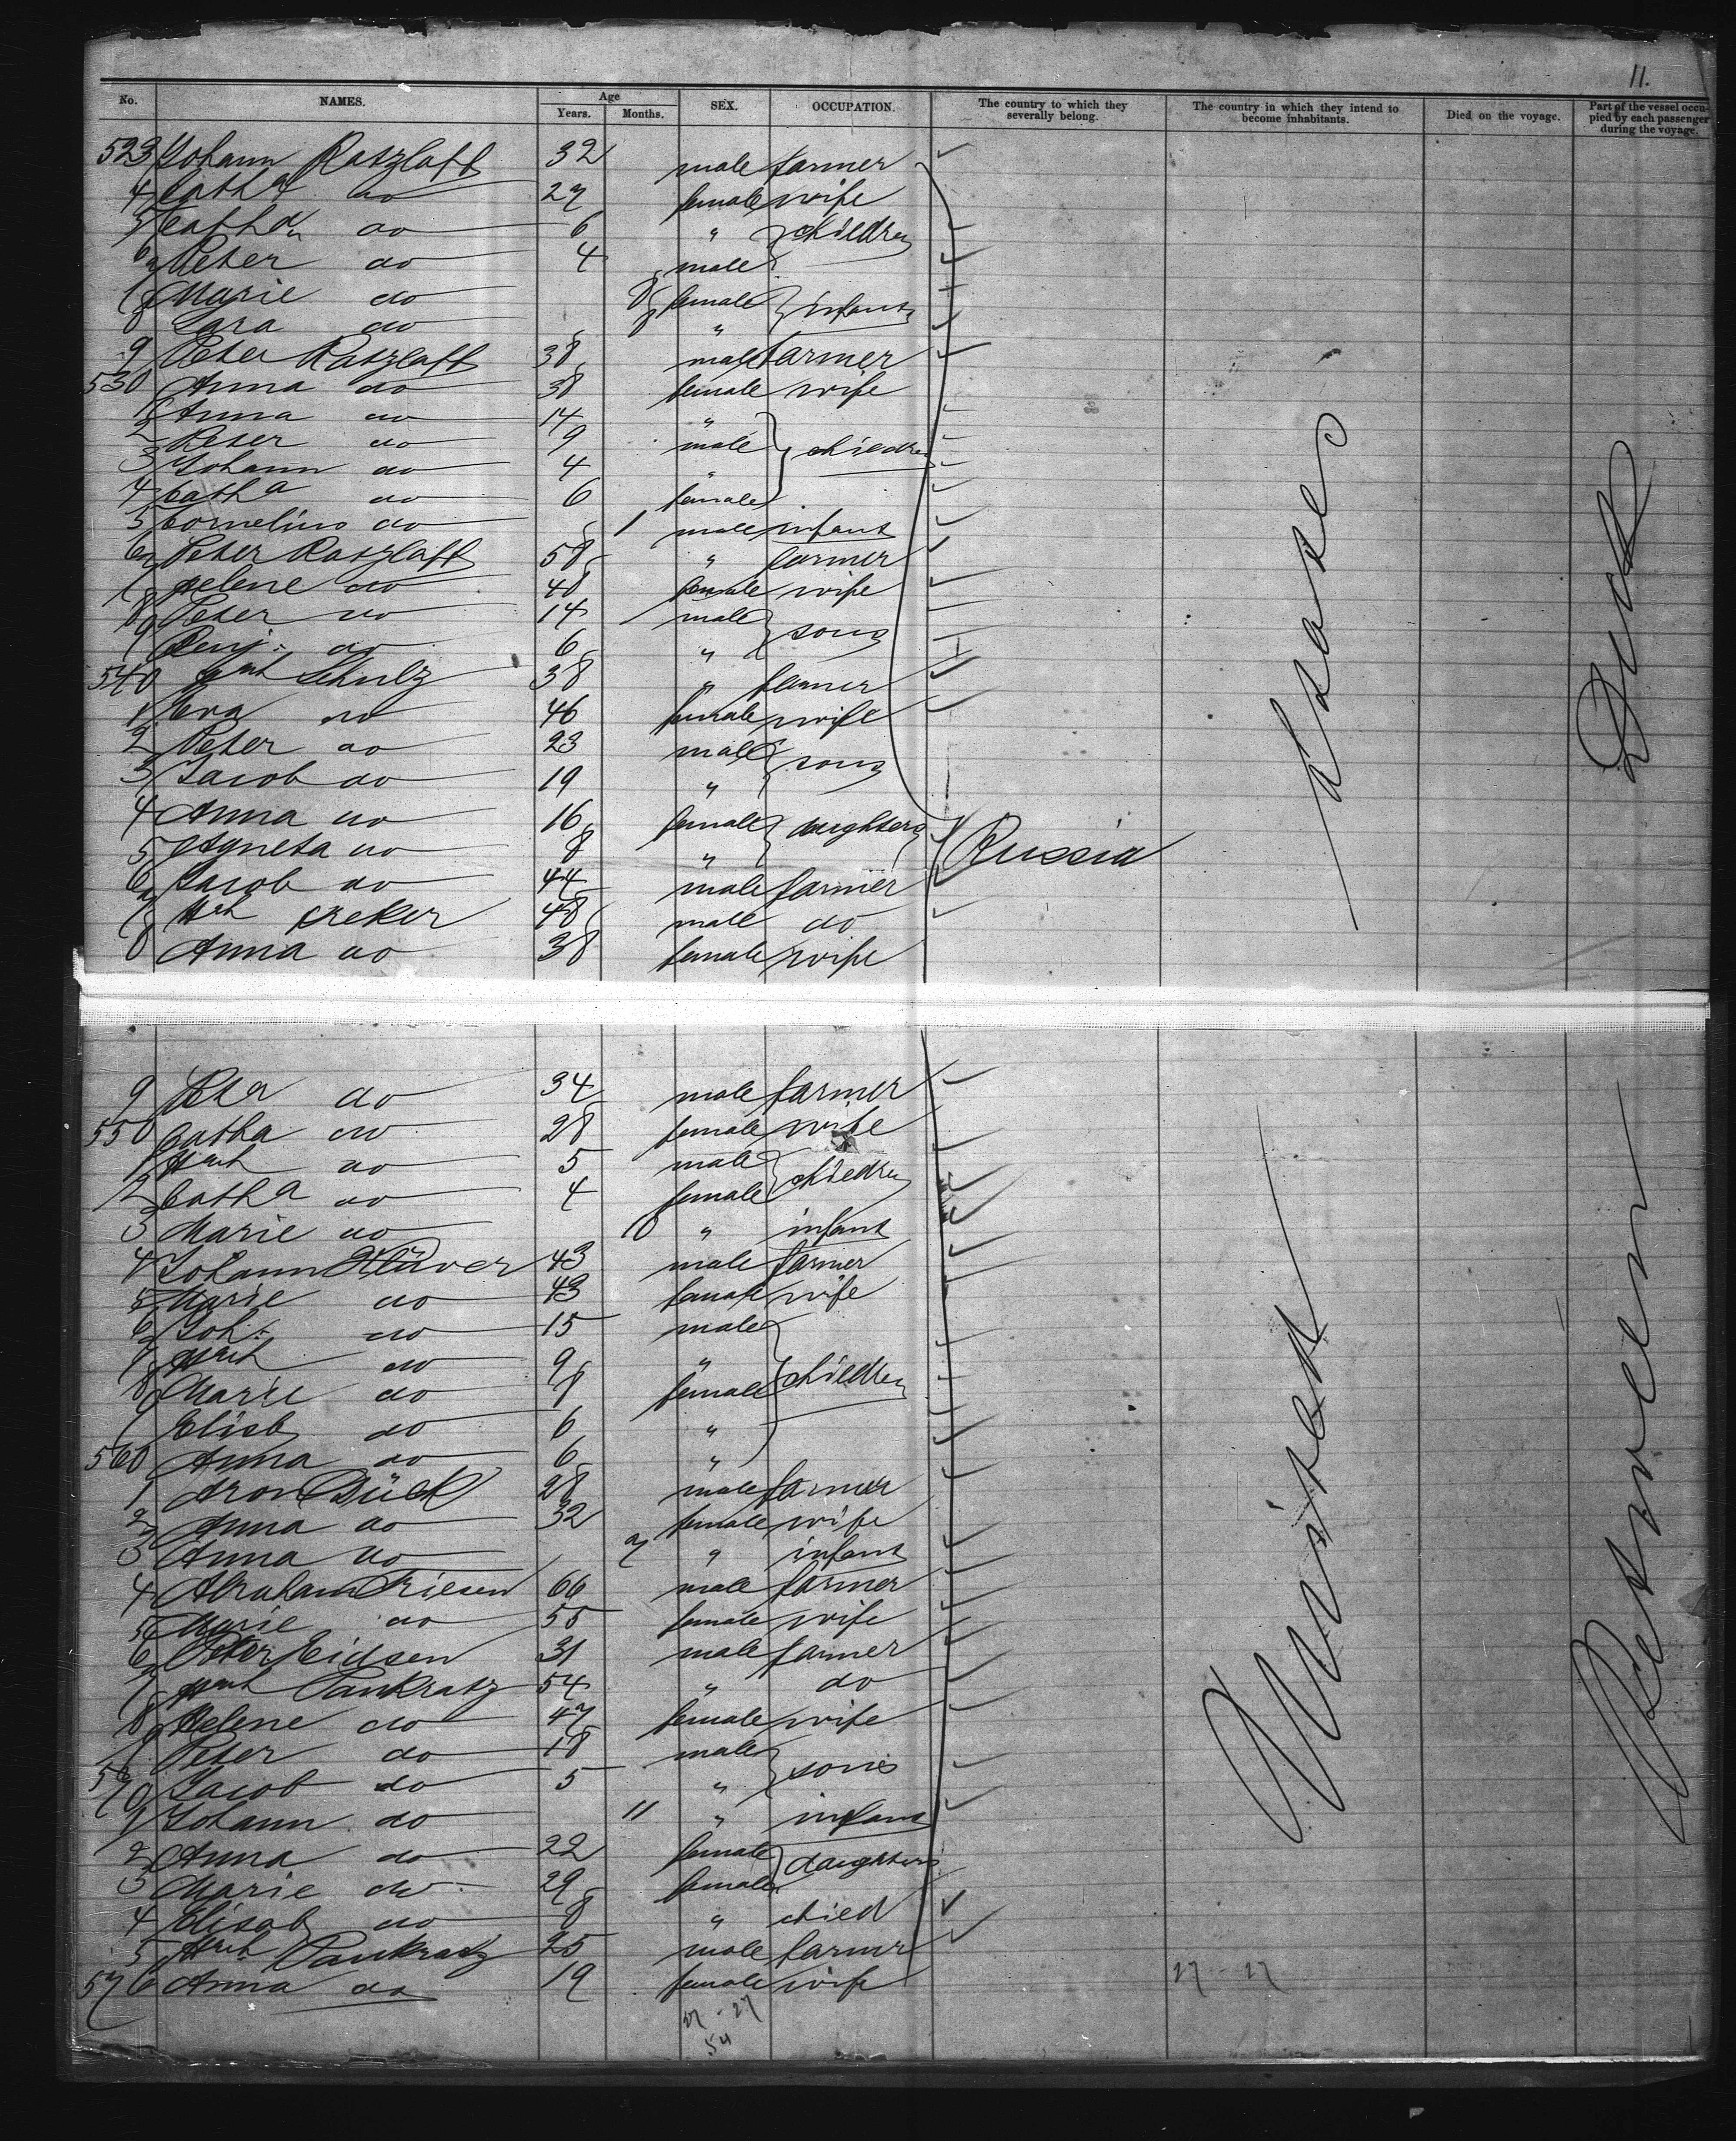 11.
No. NAMES. Age Years. Months. SEX. OCCUPATION. The country to which they severally belong. The country in which they intend to become inhabitants. Died on the voyage. Part of the vessel occupied by each passenger during the voyage.
523 Johann Ratzlaff 32 male farmer
4 Catha do 27 female wife
5 Catha do 6 " children
6 Peter do 4 male
7 Marie do 8 female infants
8 Sara do 8 "
9 Peter Ratzlaff 38 male farmer
530 Anna do 38 female wife
1 Anna do 14 "
2 Peter do 9 male children
3 Johann do 4 "
4 Catha do 6 female
5 Cornelius do 1 male infant
6 Peter Ratzlaff 58 " farmer
7 Helene do 48 female wife
8 Peter do 14 male sons
9 Benj. do 6 "
540 Schulz 38 " farmer
1 Eva do 46 female wife
2 Peter do 23 male sons
3 Jacob do 19 "
4 Anna do 16 female daughters
5 Agneta do 8 " Russia
6 Jacob do 44 male farmer
7 Hch 48 male do
8 Anna do 38 female wife
9 Peter do 34 male farmer
550 Catha do 28 female wife
1 Hch do 5 male children
2 Catha do 4 female
3 Marie do 10 " infant
4 Johann Klüver 43 male farmer
5 Marie do 43 female wife
6 Joh. do 15 male
7 Hch do 9 " children
8 Marie do 8 female
9 Elisb do 6 "
560 Anna do 6 "
1 Aron Bück 28 male farmer
2 Anna do 32 female wife
3 Anna do 7 " infant
4 Abraham Friesen 66 male farmer
5 Marie do 55 female wife
6 Peter Eidsen 31 male farmer
7 Hch Pankratz 54 " do
8 Helene do 47 female wife
9 Peter do 18 male sons
570 Jacob do 5 "
1 Johann do 11 " infant
2 Anna do 22 female daughters
3 Marie do 29 female
4 Elisab do 8 " child
5 Hch Pankratz 25 male farmer
576 Anna do 19 female wife
27 - 27
54
27 - 27
United States
Between Deck